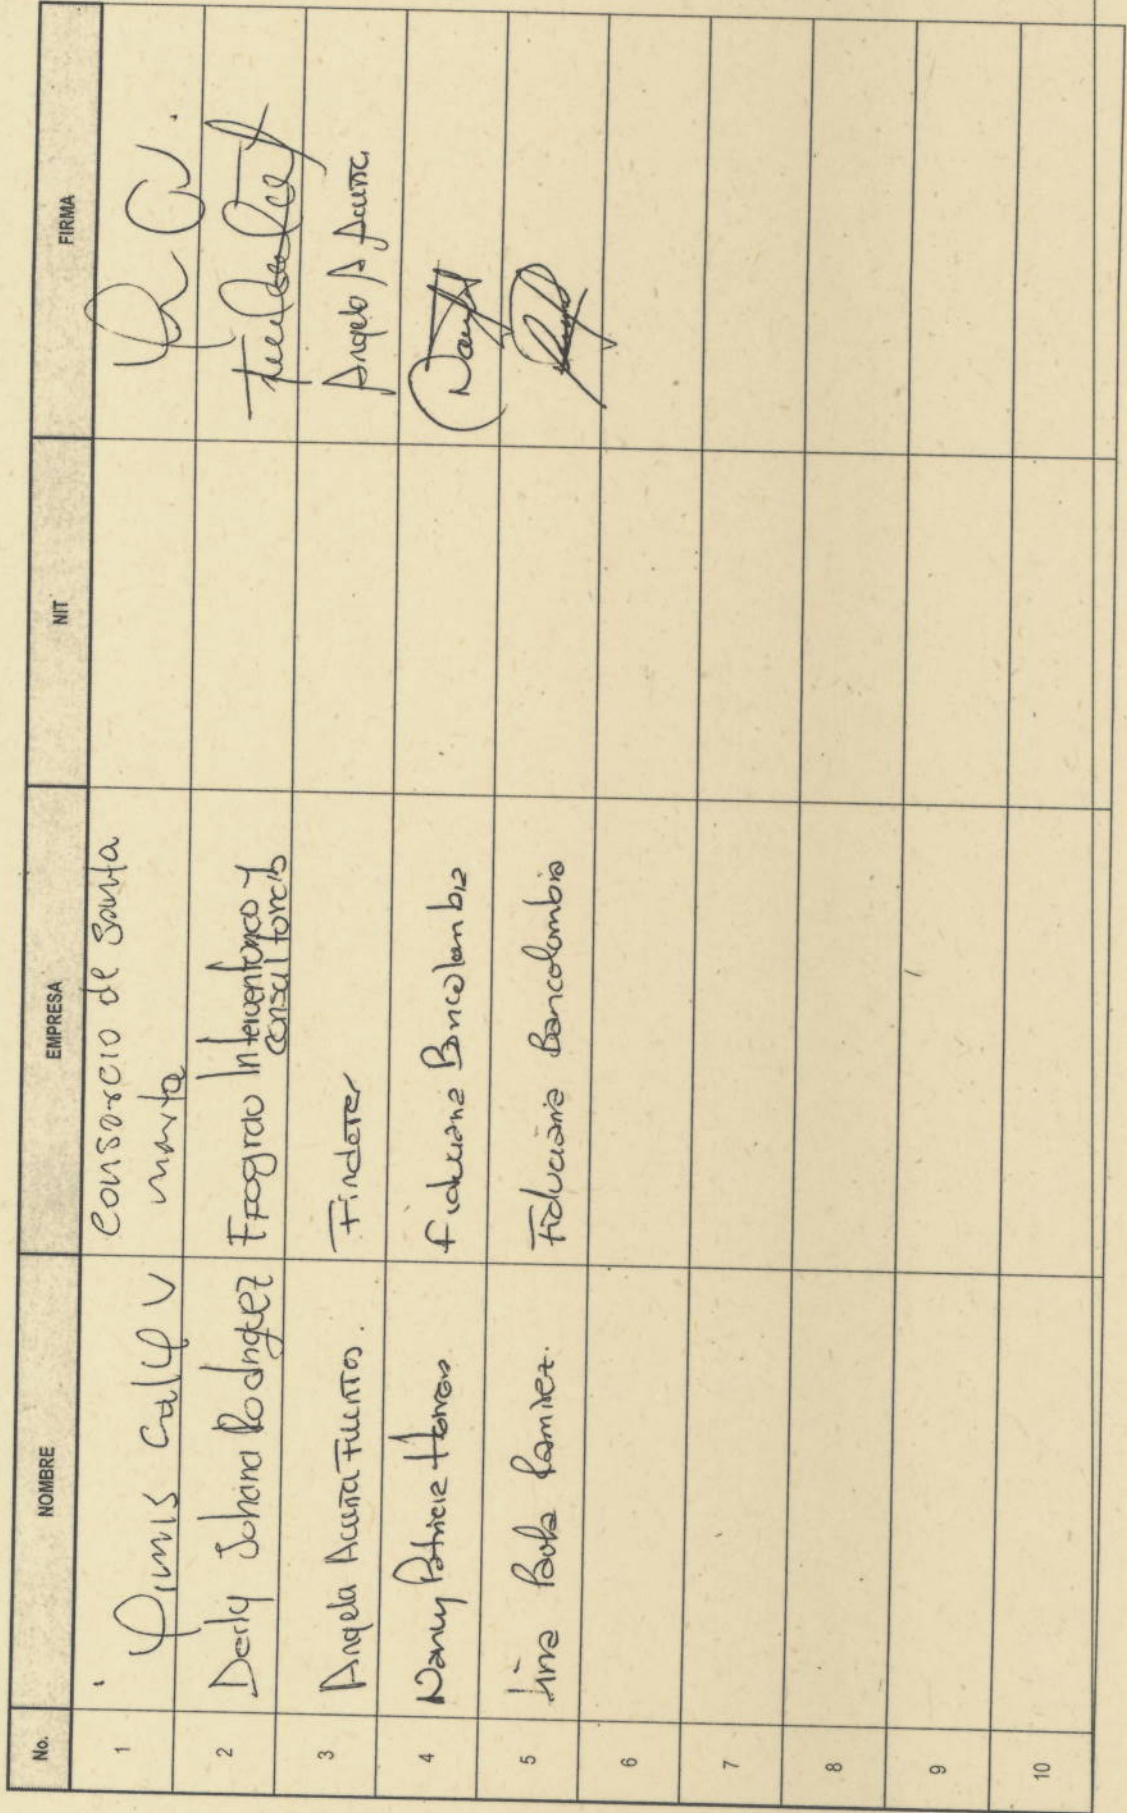 No. NOMBRE EMPRESA NIT FIRMA
1 Consorcio de Santa
marta
2 Derly Johana Rodriguez Interventorias y
consultorias
3 Angela Acuña Fuentes. Findeter Angela A Acuña
4 Nancy Patricia Fiduciaria Bancolombia Nancy
5 Lina Paola Ramirez. Fiduciaria Bancolombia
6
7
8
9
10